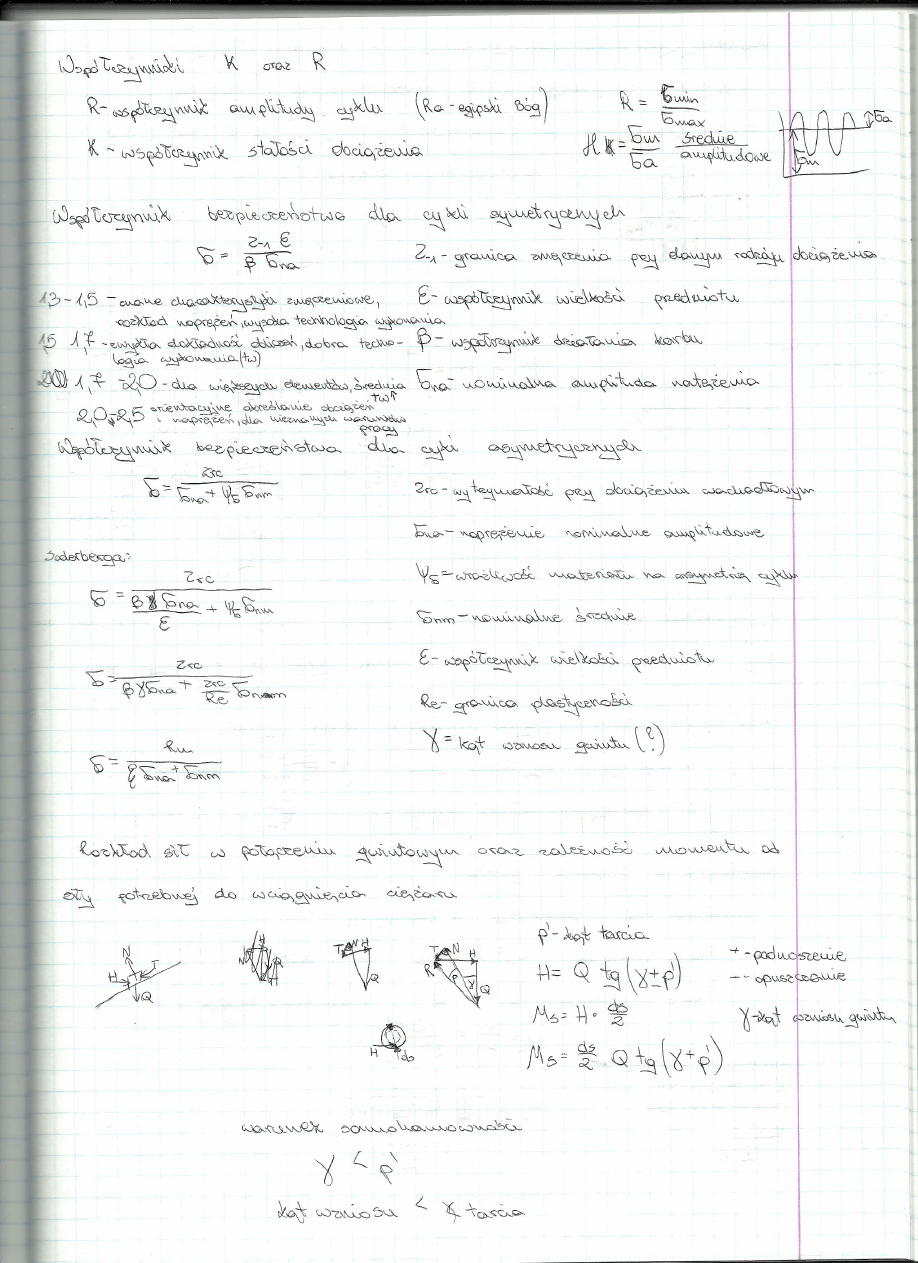 Współczynniki K oraz R
R - współczynnik amplitudy cyklu (Ra - egipski Bóg) R = σmin / σmax
K - współczynnik stałości obciążenia K = σm / σa średnie / amplitudowe
σa
σm
Współczynnik bezpieczeństwa dla cykli symetrycznych
δ = Z-1 ε / β σna
Z-1 - granica zmęczenia przy danym rodzaju obciążenia
1,3 - 1,5 - znane charakterystyki zmęczeniowe,
rozkład naprężeń, wysoka technologia wykonania
ε - współczynnik wielkości przedmiotu
1,5 1,7 - zwykła dokładność obliczeń, dobra techno-
logia wykonania (tw)
β - współczynnik działania karbu
1,7 - 2,0 - dla większych elementów, średnia tw↑
σna - nominalna amplituda natężenia
2,0 - 2,5 orientacyjne określanie obciążeń
i naprężeń, dla nieznanych warunków
pracy
Współczynnik bezpieczeństwa dla cykli asymetrycznych
δ = Zrc / σna + ψσ σnm
Zrc - wytrzymałość przy obciążeniu wachadłowym
σna - naprężenie nominalne amplitudowe
Soderberga:
ψσ = wrażliwość materiału na asymetrię cyklu
δ = Zrc / β γ σna / ε + ψσ σnm
σnm - nominalne średnie
ε - współczynnik wielkości przedmiotu
δ = Zrc / β γ σna + Zrc / Re σnm
Re - granica plastyczności
γ = kąt wzniosu gwintu (?)
δ = Rm / ξ σna + σnm
Rozkład sił w połączeniu gwintowym oraz zależność momentu od
siły potrzebnej do wciągnięcia ciężaru
N H T Q
H
T N H Q
T N H R ρ γ Q
H ds
ρ' - kąt tarcia
H = Q tg (γ ± ρ')
+ - podnoszenie
- - opuszczanie
Ms = H · ds / 2
γ - kąt wzniosu gwintu
Ms = ds / 2 Q tg (γ + ρ')
warunek samohamowności
γ < ρ'
kąt wzniosu < ∢ tarcia